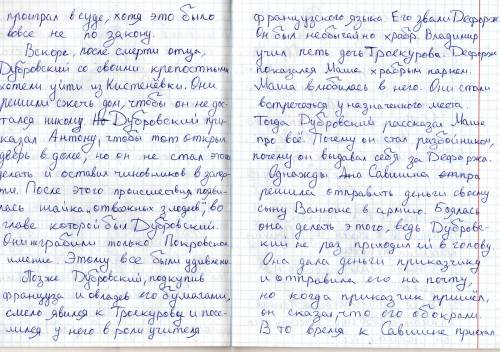 проиграл в суде, хотя это было
вовсе не по закону.
Вскоре, после смерти отца,
Дубровский со своими крепостными
хотели уйти из Кистенёвки. Они
решили сжечь дом, чтобы он не дос-
тался никому. Но Дубровский при-
казал Антону, чтобы тот открыл
дверь в доме, но он не стал этого
делать и оставил чиновников в запер-
ти. После этого происшествия появи-
лась шайка „отважных злодеев", во
главе которой был Дубровский.
Они грабили только Покровское
имение. Этому все были удивлены.
Позже Дубровский, подкупив
француза и овладев его бумагами,
смело явился к Троекурову и посе-
лился у него в роли учителя
французского языка. Его звали Дефорж
он был необычайно храбр. Владимир
учил петь дочь Троекурова. Дефорж
показался Маше храбрым парнем.
Маша влюбилась в него. Они стали
встречаться у назначенного места.
Тогда Дубровский рассказал Маше
про всё. Почему он стал разбойником,
почему он выдавал себя за Дефоржа.
Однажды Ана Савишна
решила отправить деньги своему
сыну Ванюше в армию. Боялась
она делать этого, ведь Дубровс-
кий не раз приходил ей в голову.
Она дала деньги приказчику
и отправила его на почту,
но когда приказчик пришел,
он сказал, что его обокрали.
В то время к Савишне приехал